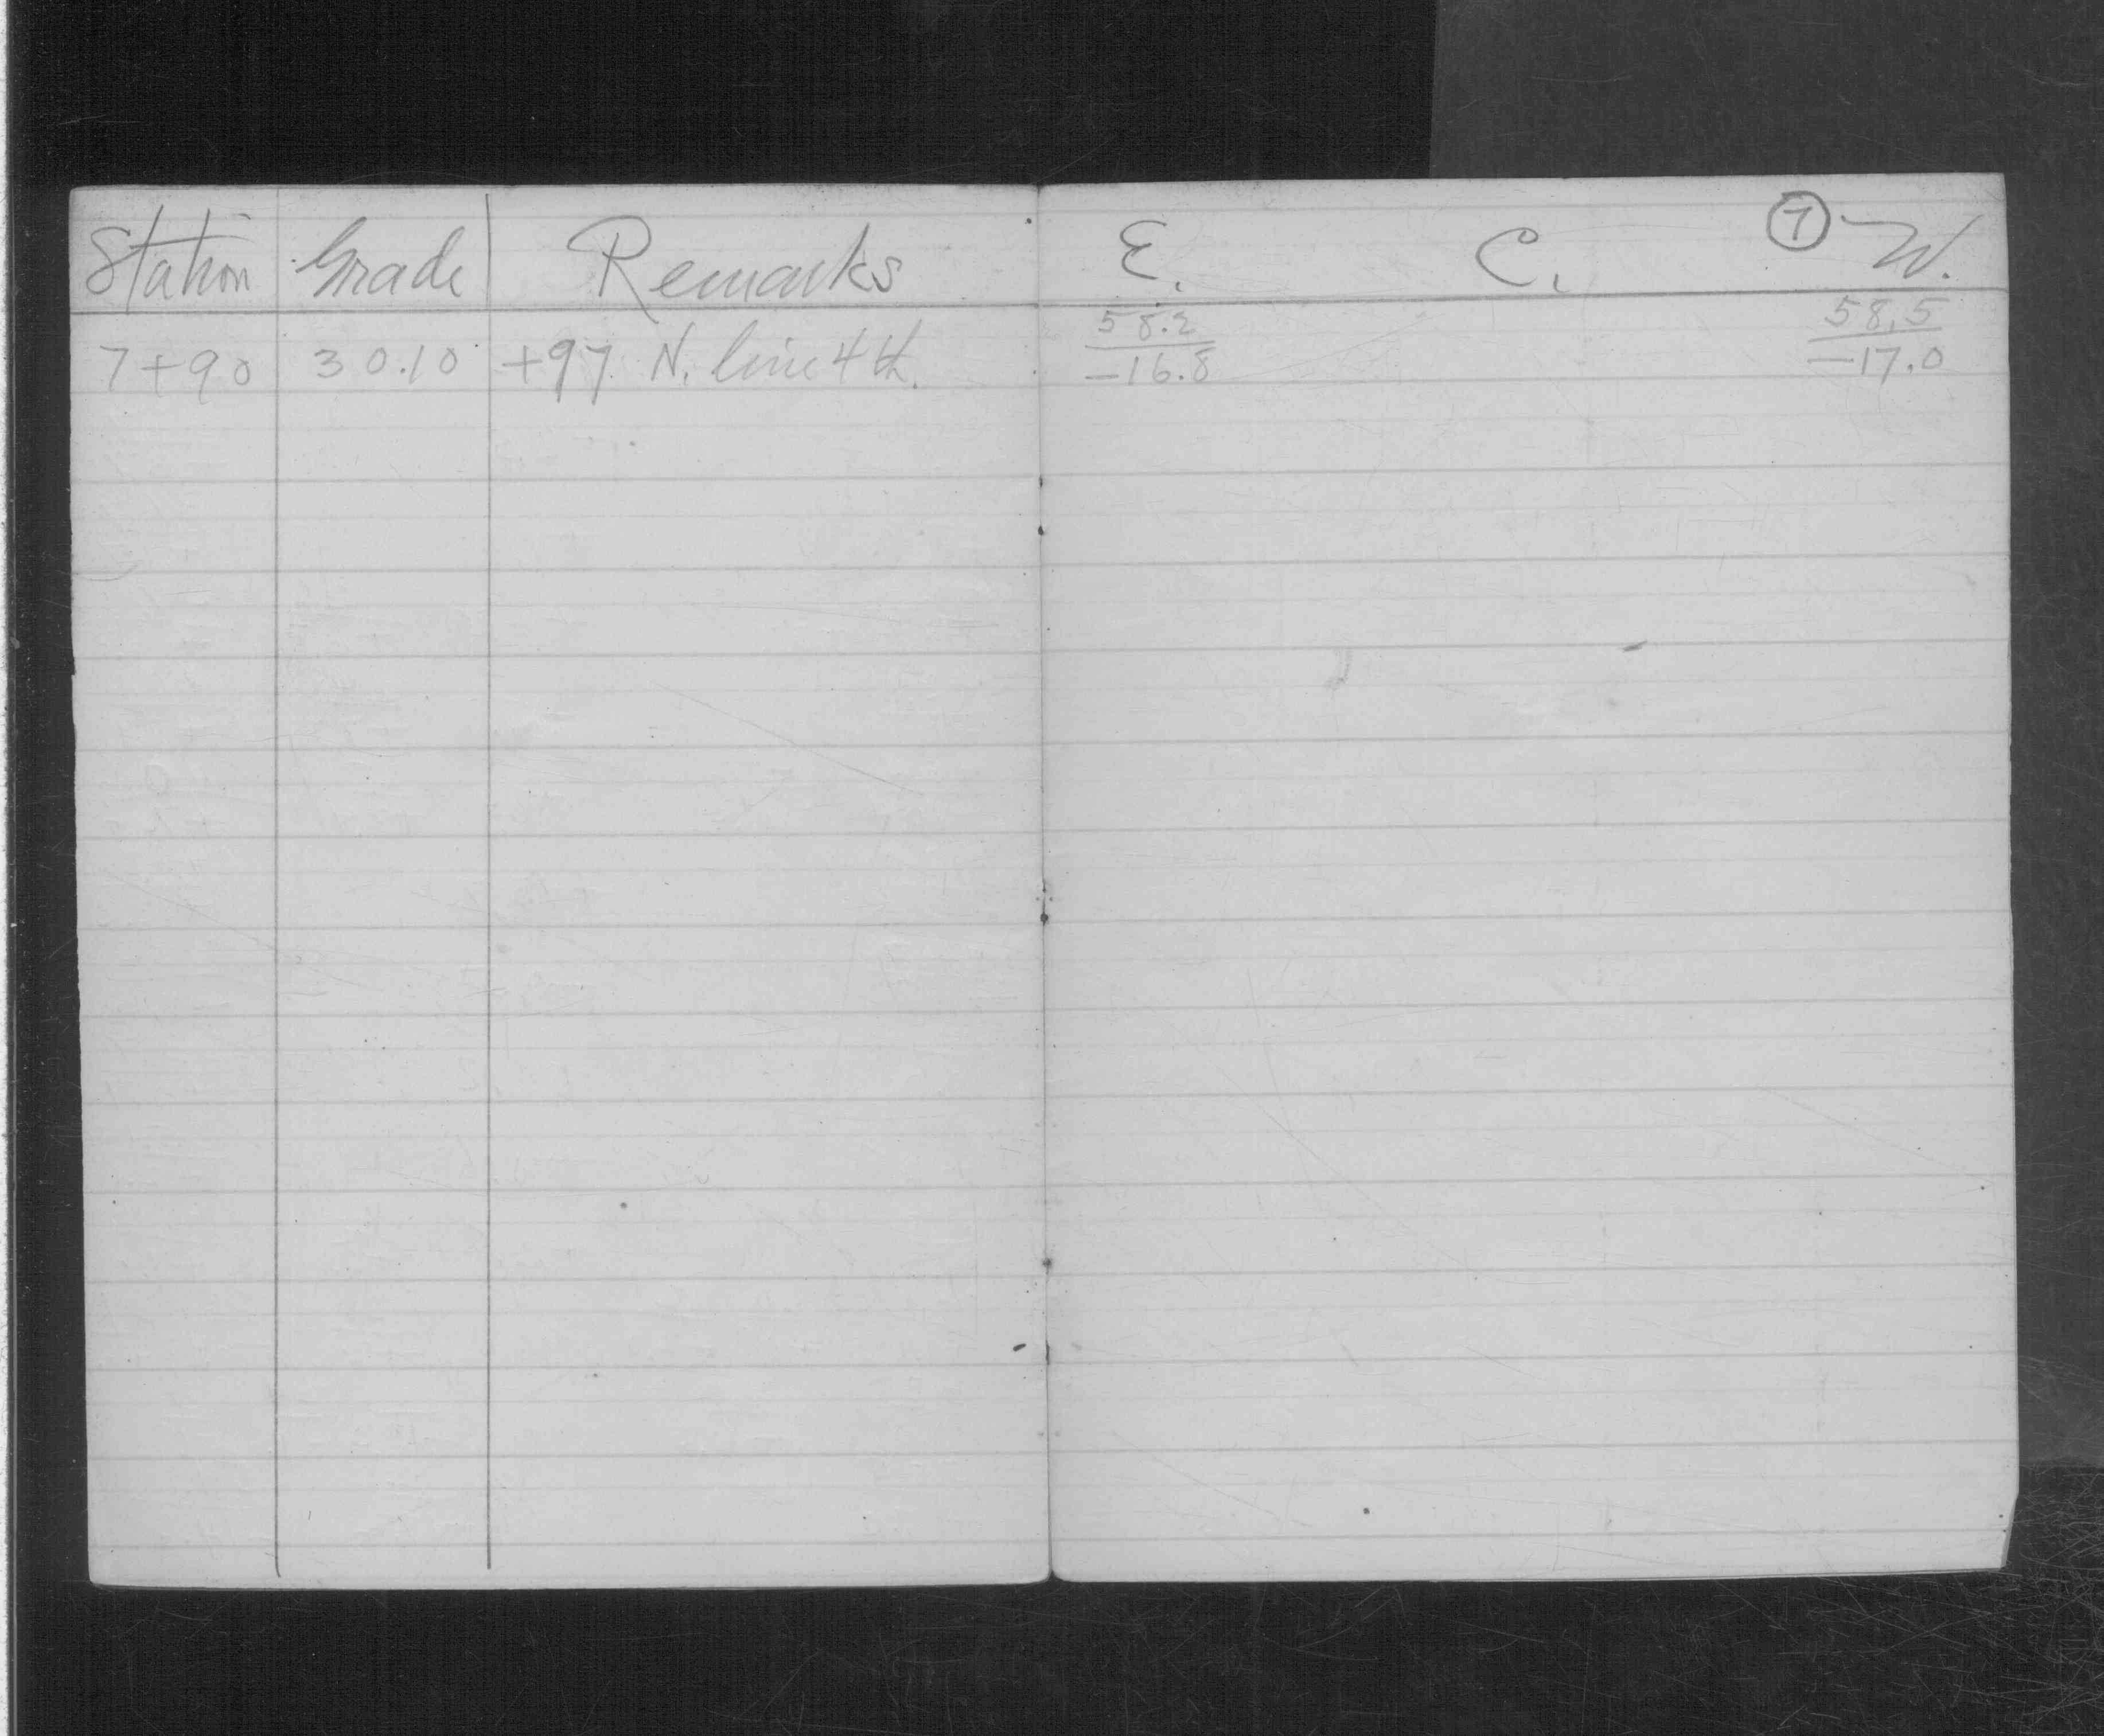 Station Grade Remarks E. C. 7 W.
58.2 58.5
7+90 30.10 +97 N. line 4th. -16.8 -17.0